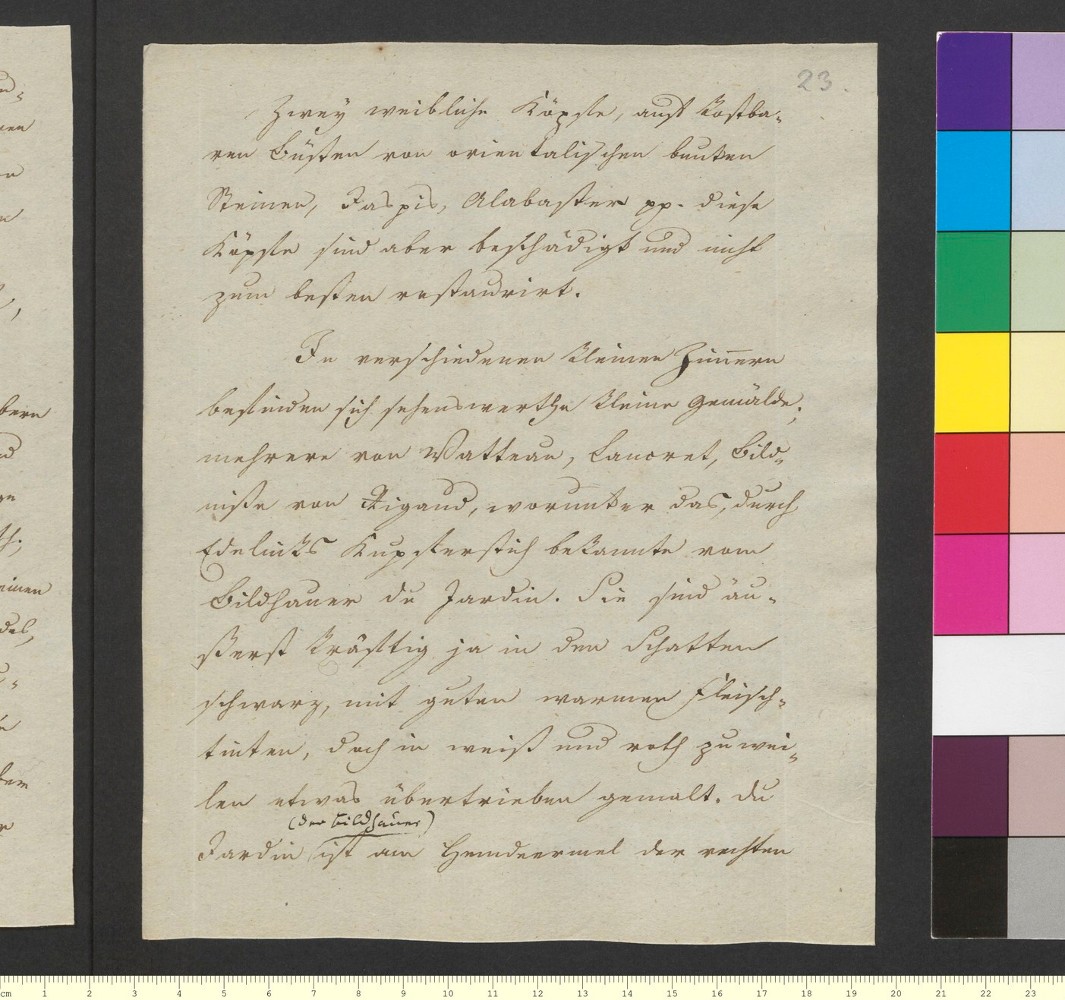 23.
Zwey weibliche Köpfe, auf kostba-
ren Büsten von orientalischen bunten
Steinen, Jaspis, Alabaster pp. diese
Köpfe sind aber beschädigt und nicht
zum besten restaurirt.
In verschiedenen kleinen Zim̅ern
befinden sich sehenswerthe kleine Gemälde,
mehrere von Watteau, Lancret, Bild-
niße von Rigaud, worunter das, durch
Edelinks Kupferstich bekannte vom
Bildhauer du Jardin. Sie sind äu-
ßerst kräftig ja in den Schatten
schwarz, mit guten warmen Fleisch-
tinten, doch in weiß und roth zuwei-
len etwas übertrieben gemalt. du
(der Bildhauer)
Jardin ist am Hemdeermel der rechten